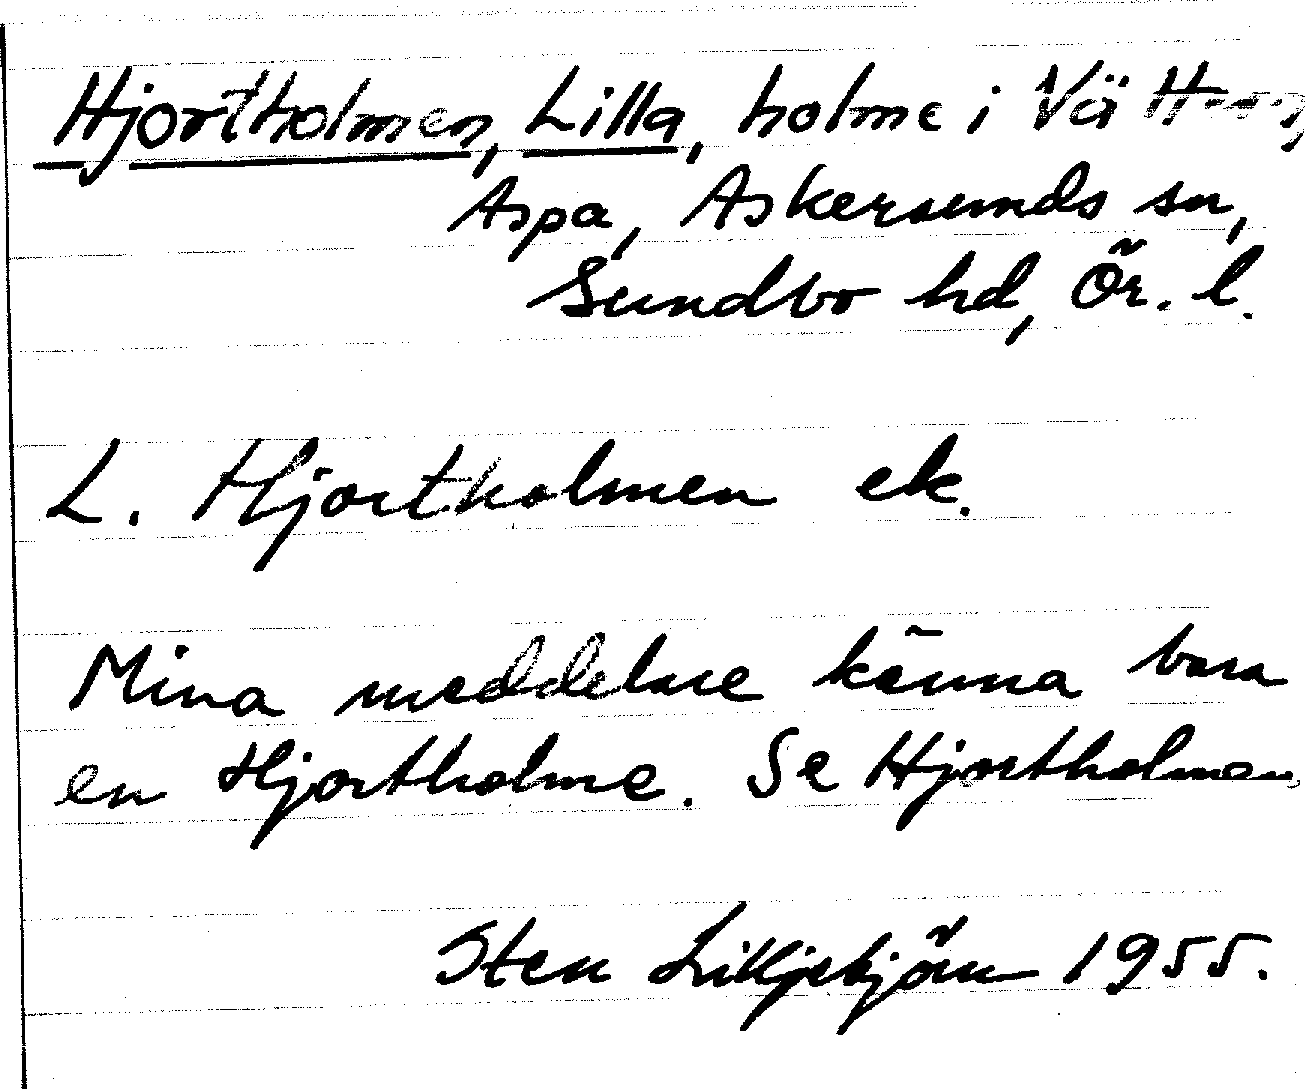 Hjortholmen, Lilla, holme i Vättern,
Aspa, Askersunds sn,
Sundbo hd, Ör. l.
L. Hjortholmen ek.
Mina meddelare känna bara
en Hjortholme. Se Hjortholmen,
Sten 1955.